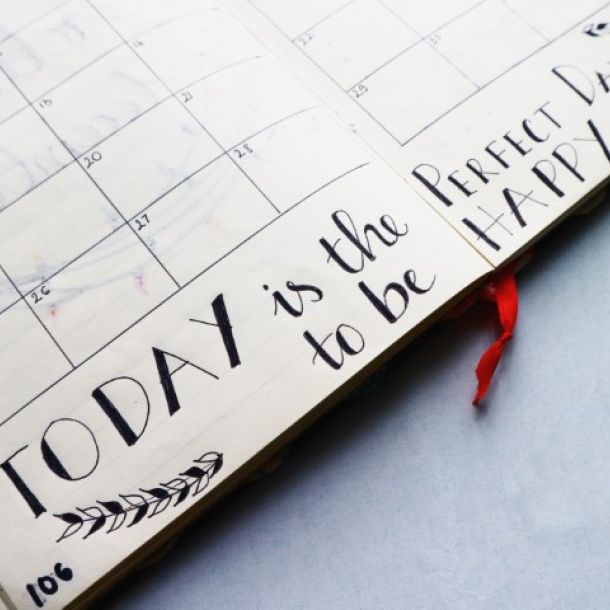 14
13
21
20
28
27
26
TODAY is the
to be
106
22
29
PERFECT
HAPPY